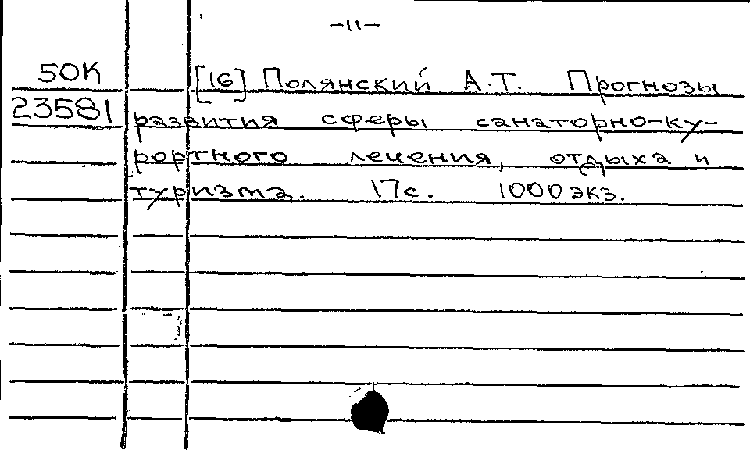 -11-
50К [16] Полянский А.Т. Прогнозы
23581 развития сферы санаторно-ку-
рортного лечения, отдыха и
туризма. 17с. 1000 экз.